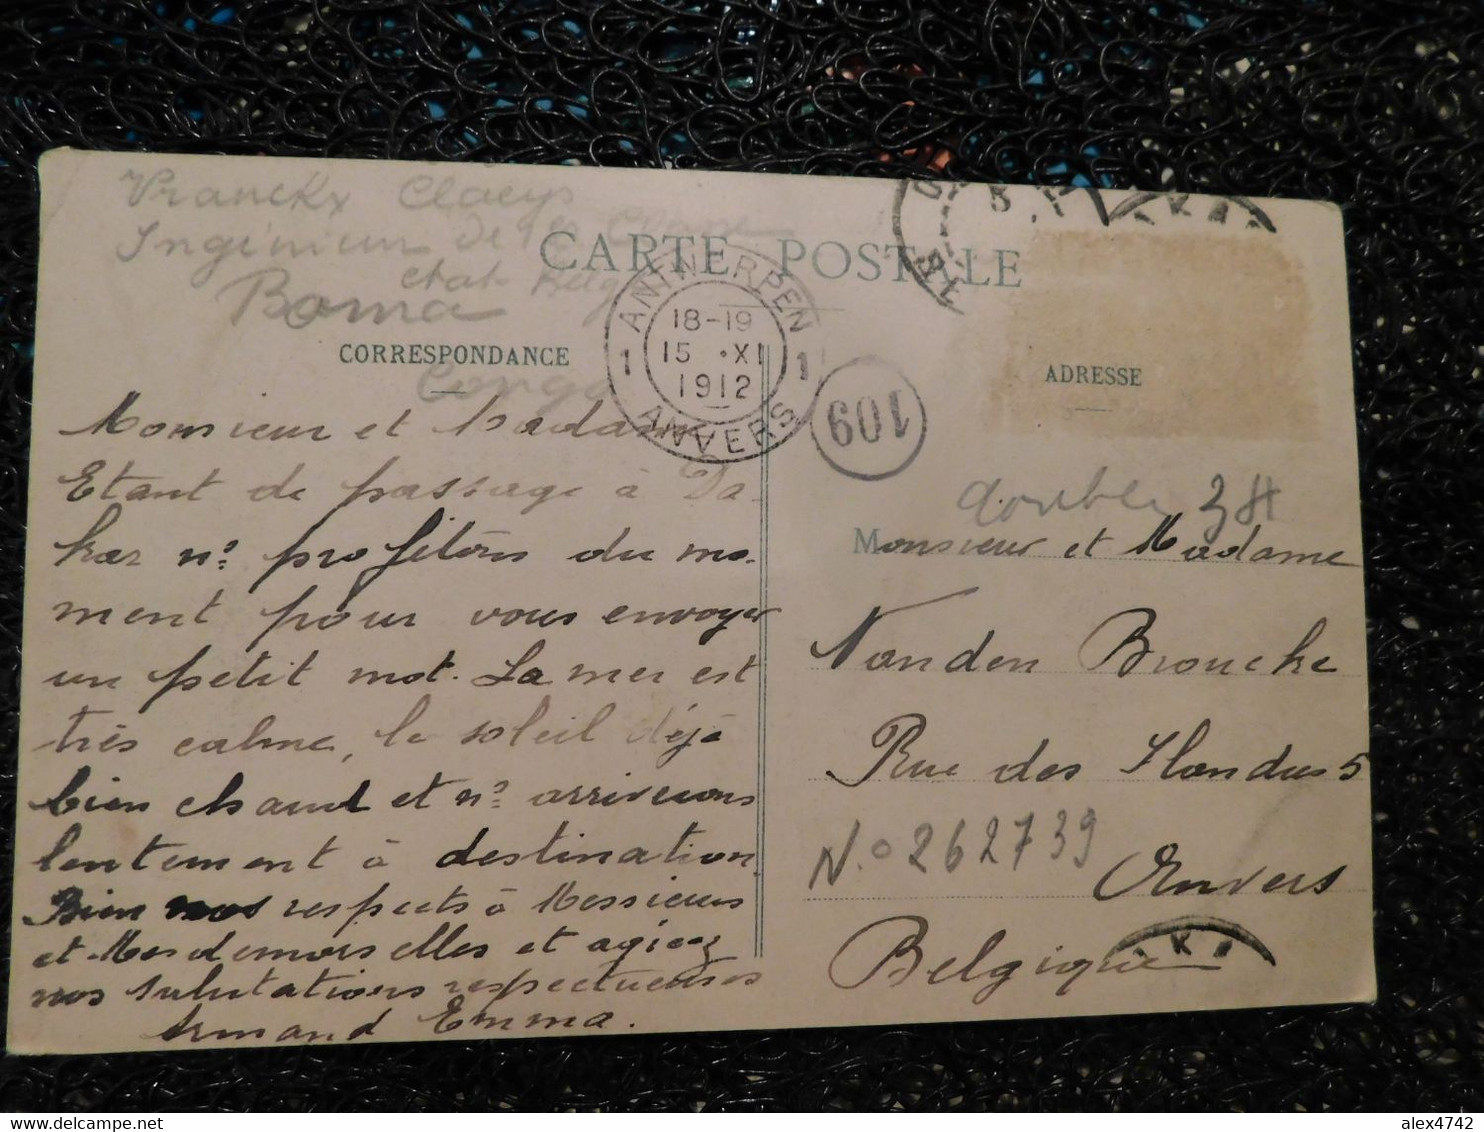 Vranckx Claeys
Ingénieur de 1e Classe
état Belge
Boma
Congo
CARTE POSTALE
CORRESPONDANCE
ADRESSE
ANTWERPEN
1 18-19 1
15 XI
1912
ANVERS
109
AKA
Monsieur et Madame
Etant de passage à Da-
kar ns. profitons du mo-
ment pour vous envoyer
un petit mot. La mer est
très calme, le soleil déjà
bien chaud et ns. arriverons
lentement à destination.
Bien nos respects à Messieurs
et Mesdemoiselles et agréez
nos salutations respectueuses
Armand Emma.
double 3 H
Monsieur et Madame
Vanden Broucke
Rue des Flandres 5
N.o 262739
Anvers
Belgique
AKA
alex4742